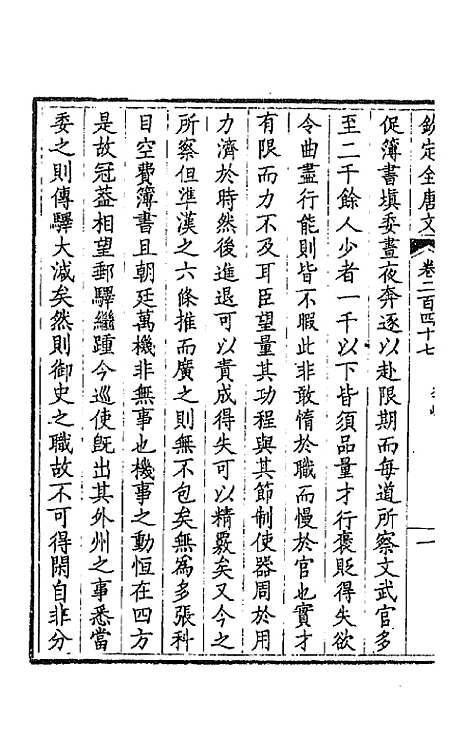 欽定全唐文 卷二百四十七 李嶠 一
促簿書填委晝夜奔逐以赴限期而每道所察文武官多
至二千餘人少者一千以下皆須品量才行褒貶得失欲
令曲盡行能則皆不暇此非敢惰於職而慢於官也實才
有限而力不及耳臣望量其功程與其節制使器周於用
力濟於時然後進退可以責成得失可以精覈矣又今之
所察但準漢之六條推而廣之則無不包矣無為多張科
目空費簿書且朝廷萬機非無事也機事之動恒在四方
是故冠葢相望郵驛繼踵今巡使旣出其外州之事悉當
委之則傳驛大減矣然則御史之職故不可得閑自非分